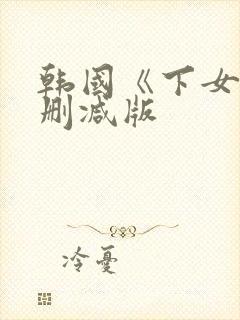 韩國《下女
删减版
冷憂